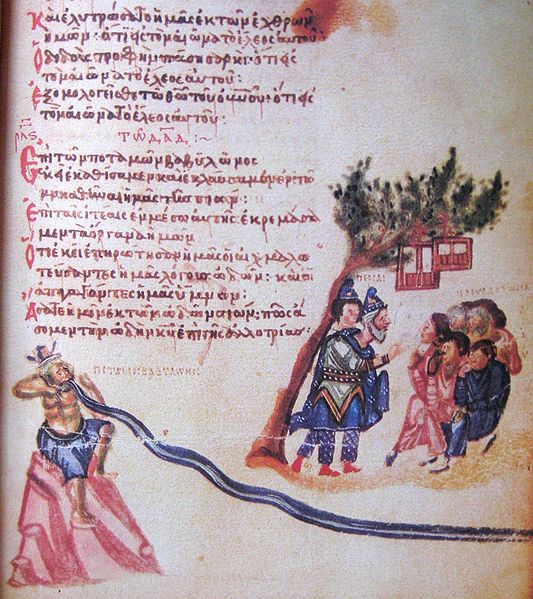 Καὶ ἐλυτρώσατο ἡμᾶς ἐκ τῶν ἐχθρῶν
ἡμῶν· ὅτι εἰς τὸν αἰῶνα τὸ ἔλεος αὐτοῦ·
Ὁ διδοὺς τροφὴν πάση σαρκί· ὅτι εἰς
τὸν αἰῶνα τὸ ἔλεος αὐτοῦ:
Ἐξομολογεῖσθε τῶ θῶ τοῦ οὐνοῦ· ὅτι εἰς
τὸν αἰῶνα τὸ ἔλεος αὐτοῦ:
ΤΩ ΔΑΔ
Ἐπὶ τῶν ποταμῶν βαβυλῶνος
ἐκεῖ ἐκαθίσαμεν καὶ ἐκλαύσαμεν ἐν τῶ
μνησθῆναι ἡμᾶς τῆς σιών:
Ἐπὶ ταῖς ἰτέαις ἐν μέσω αὐτῆς ἐκρεμάσα
μεν τὰ ὄργανα ἡμῶν
Ὅτι ἐκεῖ ἐπηρώτησαν ἡμᾶς οἱ αἰχμαλω
τεύσαντες ἡμᾶς λόγους ὠδῶν· καὶ οἱ
ἀπαγαγόντες ἡμᾶς ὕμνον:
Ἄσατε ἡμῖν ἐκ τῶν ὠδῶν σιών: πῶς ἄ
σωμεν τὴν ὠδὴν κυ ἐπὶ γῆς ἀλλοτρίας: